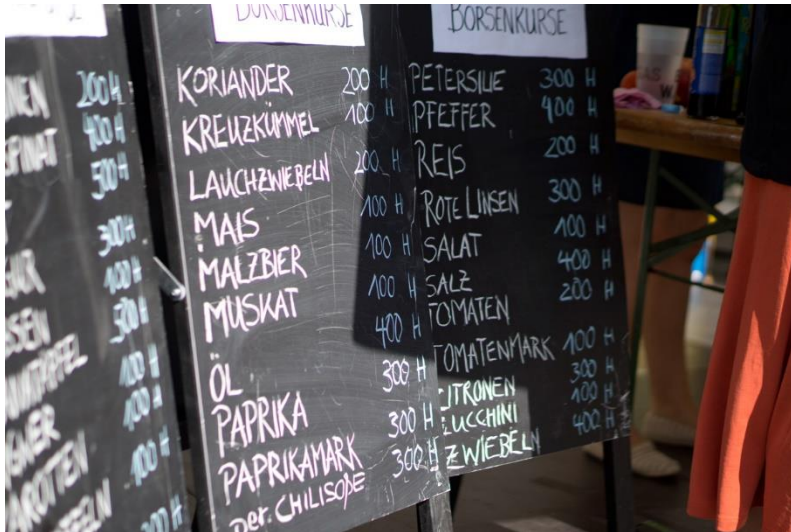 200 H
400 H
500 H
300 H
100 H
500 H
100 H
100 H
100 H
200 H
BÖRSENKURSE
KORIANDER 200 H
KREUZKÜMMEL 100 H
LAUCHZWIEBELN 200 H
MAIS 100 H
MALZBIER 100 H
MUSKAT 100 H
ÖL 400 H
PAPRIKA 300 H
PAPRIKAMARK 300 H
der. CHILISOẞE 300 H
BÖRSENKURSE
PETERSILIE 300 H
PFEFFER 400 H
REIS 200 H
ROTE LINSEN 300 H
SALAT 100 H
SALZ 400 H
TOMATEN 200 H
TOMATENMARK 100 H
ZITRONEN 300 H
ZUCCHINI 100 H
ZWIEBELN 400 H